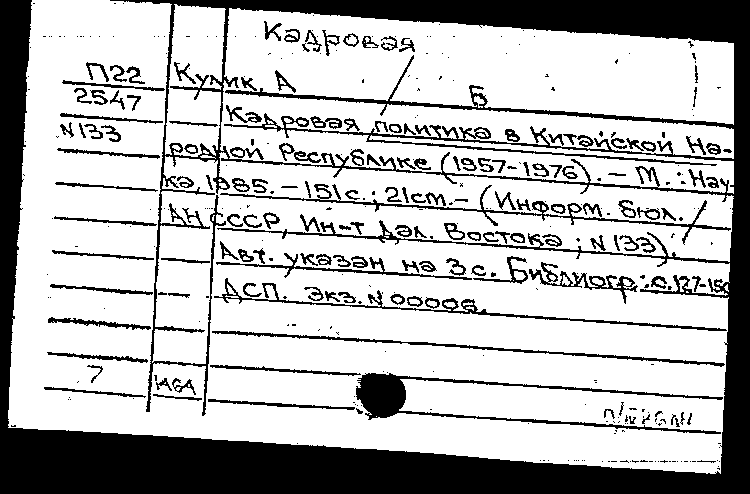 Кадровая
П22 Кулик, А Б
2547 Кадровая политика в Китайской На-
N133 родной Республике (1957-1976). – М.: Нау-
ка, 1985. – 151 с.; 21 см. – (Информ. бюл. /
АН СССР, Ин-т Дал. Востока; N 133).
Авт. указан на 3 с. Библиогр.: с. 127-150
ДСП. Экз. N 00006.
7